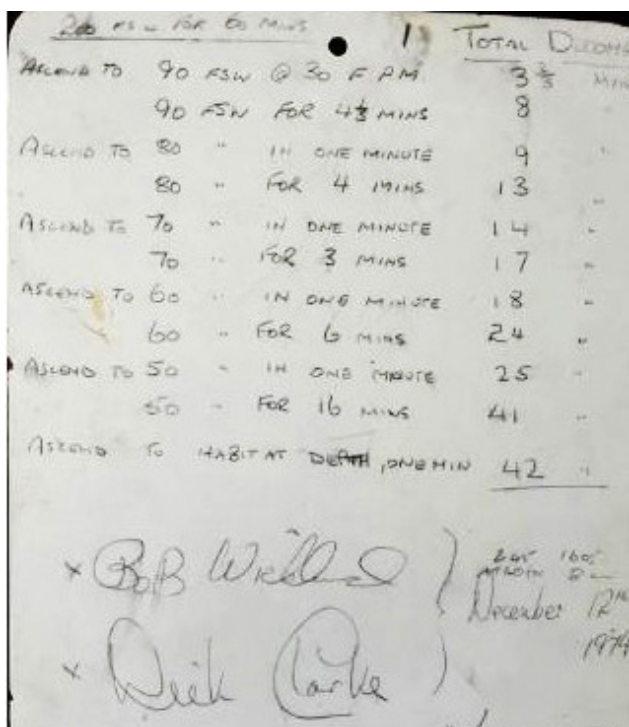 200 FSW FOR 60 MINS
1 TOTAL DECOMP
ASCEND TO 90 FSW @ 30 F P.M. 3 2/3 MIN
90 FSW FOR 4 1/3 MINS 8 "
ASCEND TO 80 " IN ONE MINUTE 9 "
80 " FOR 4 MINS 13 "
ASCEND TO 70 " IN ONE MINUTE 14 "
70 " FOR 3 MINS 17 "
ASCEND TO 60 " IN ONE MINUTE 18 "
60 " FOR 6 MINS 24 "
ASCEND TO 50 " IN ONE MINUTE 25 "
50 " FOR 16 MINS 41 "
ASCEND TO HABITAT DEPTH, ONE MIN 42 "
x Bob
x Dick Clarke
December 12th
1974